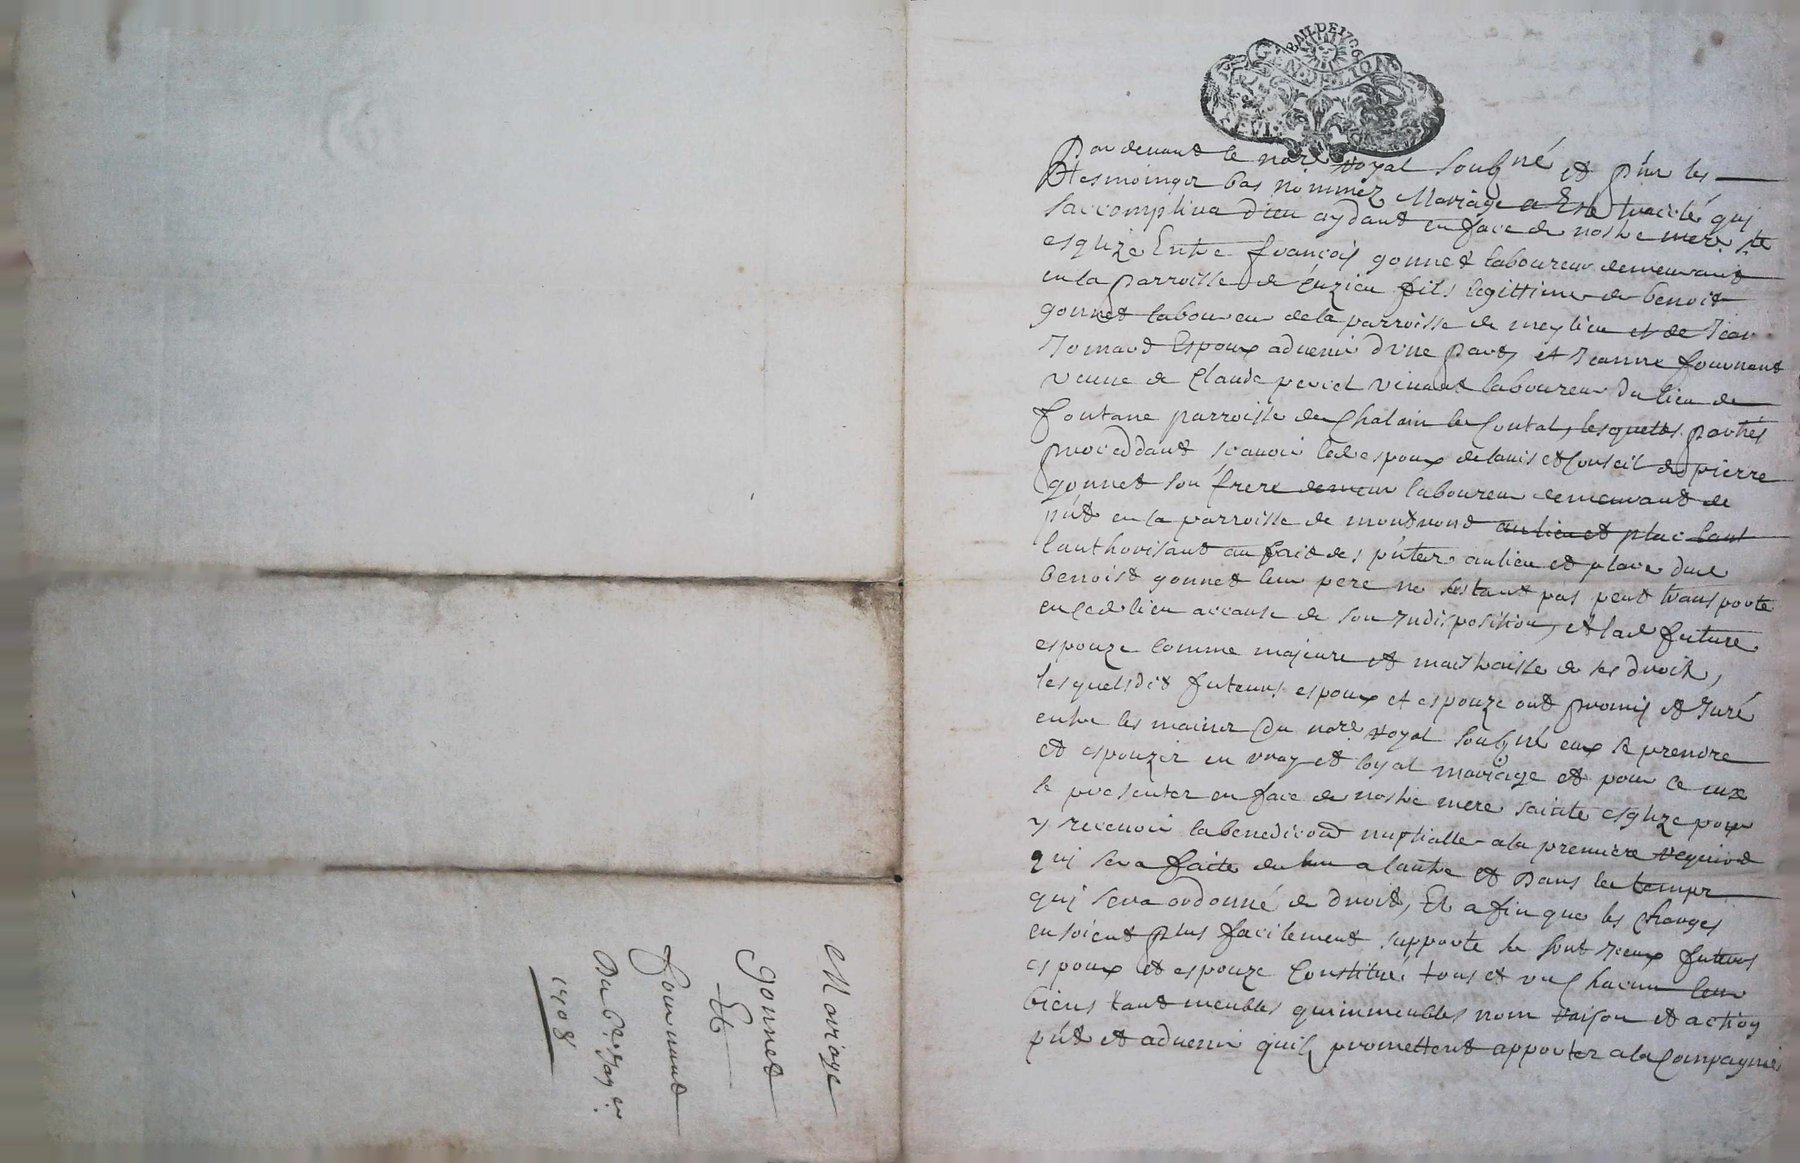 Mariage
Gonnet
Et
Fournand
Du 6e Jan er
1708
BAIL DE 1706
GEN DE LION
Par devant le nore royal soubsné et pnt les
tesmoings bas nommez Mariage a esté traicté quj
saccomplira dieu aydant en face de nostre mere ste
esglize Entre françois gonnet laboureur demeurant
en la parroisse de Cuzieu fils legittime de benoit
gonnet laboureur de la parroisse de meylieu et de Jean
Jomard Espoux advenir d'une part, et Jeanne fournand
veuve de Claude percet vivant laboureur du lieu de
fontane parroisse de Chalain le Contal, lesquelles parties
proceddant scavoir led espoux de lavis et Conseil de pierre
gonnet son frere laboureur demeurant de
pnt en la parroisse de montrond
lauthorisant au fait des pntes au lieu et place dud
benoist gonnet leur pere ne sestant pas peut transporte
en Ced lieu accause de son Indisposition, et lad future
espouze comme majeure et maistraisse de ses droits,
lesquelsdit futeurs espoux et espouze ont promis et Juré
entre les mains du nore royal soubsné eux se prendre
et espouzer en vray et loyal mariage et pour ce eux
se presenter en face de nostre mere sainte esglize pour
y recevoir la benediction nuptialle a la premiere requisit
quj sera faite de lun a lautre et dans le temps
quj sera ordonné de droit, Et afin que les charges
en soient plus facilement supporte se sont Iceux futeurs
espoux et espouze Constitué tous et vn Chacun leur
biens tant meubles quimmeubles nom raison et action
pnt et advenir quils promettent apporter a la Compagnie